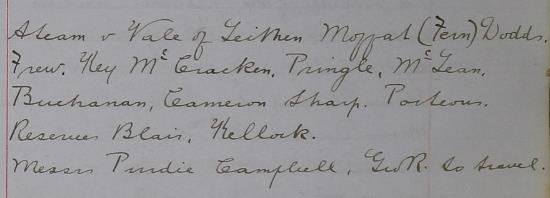 A team v Vale of Leithen Moffat (Fern) Dodds.
Frew. Key McCracken, Pringle, McLean,
Buchanan, Cameron Sharp. Porteous.
Reserves Blair, Kellock.
Messrs Purdie Campbell, Geo R. to travel.